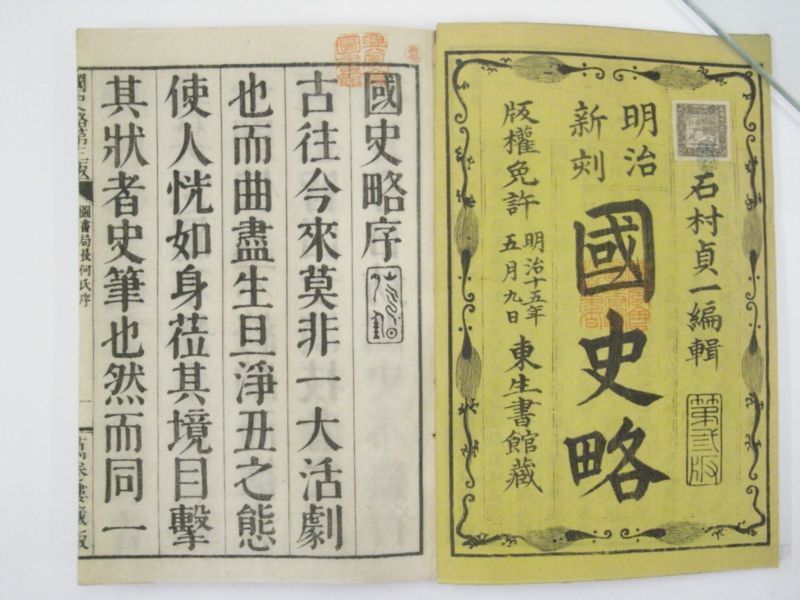 石村貞一編輯
第弐版
明治
新刻
國史略
版權免許
明治十五年
五月九日
東生書館藏
國史略序
古往今來莫非一大活劇
也而曲盡生旦淨丑之態
使人恍如身莅其境目擊
其狀者史筆也然而同一
國史略第三版
圖書局長何氏序
一
萬采樓藏版